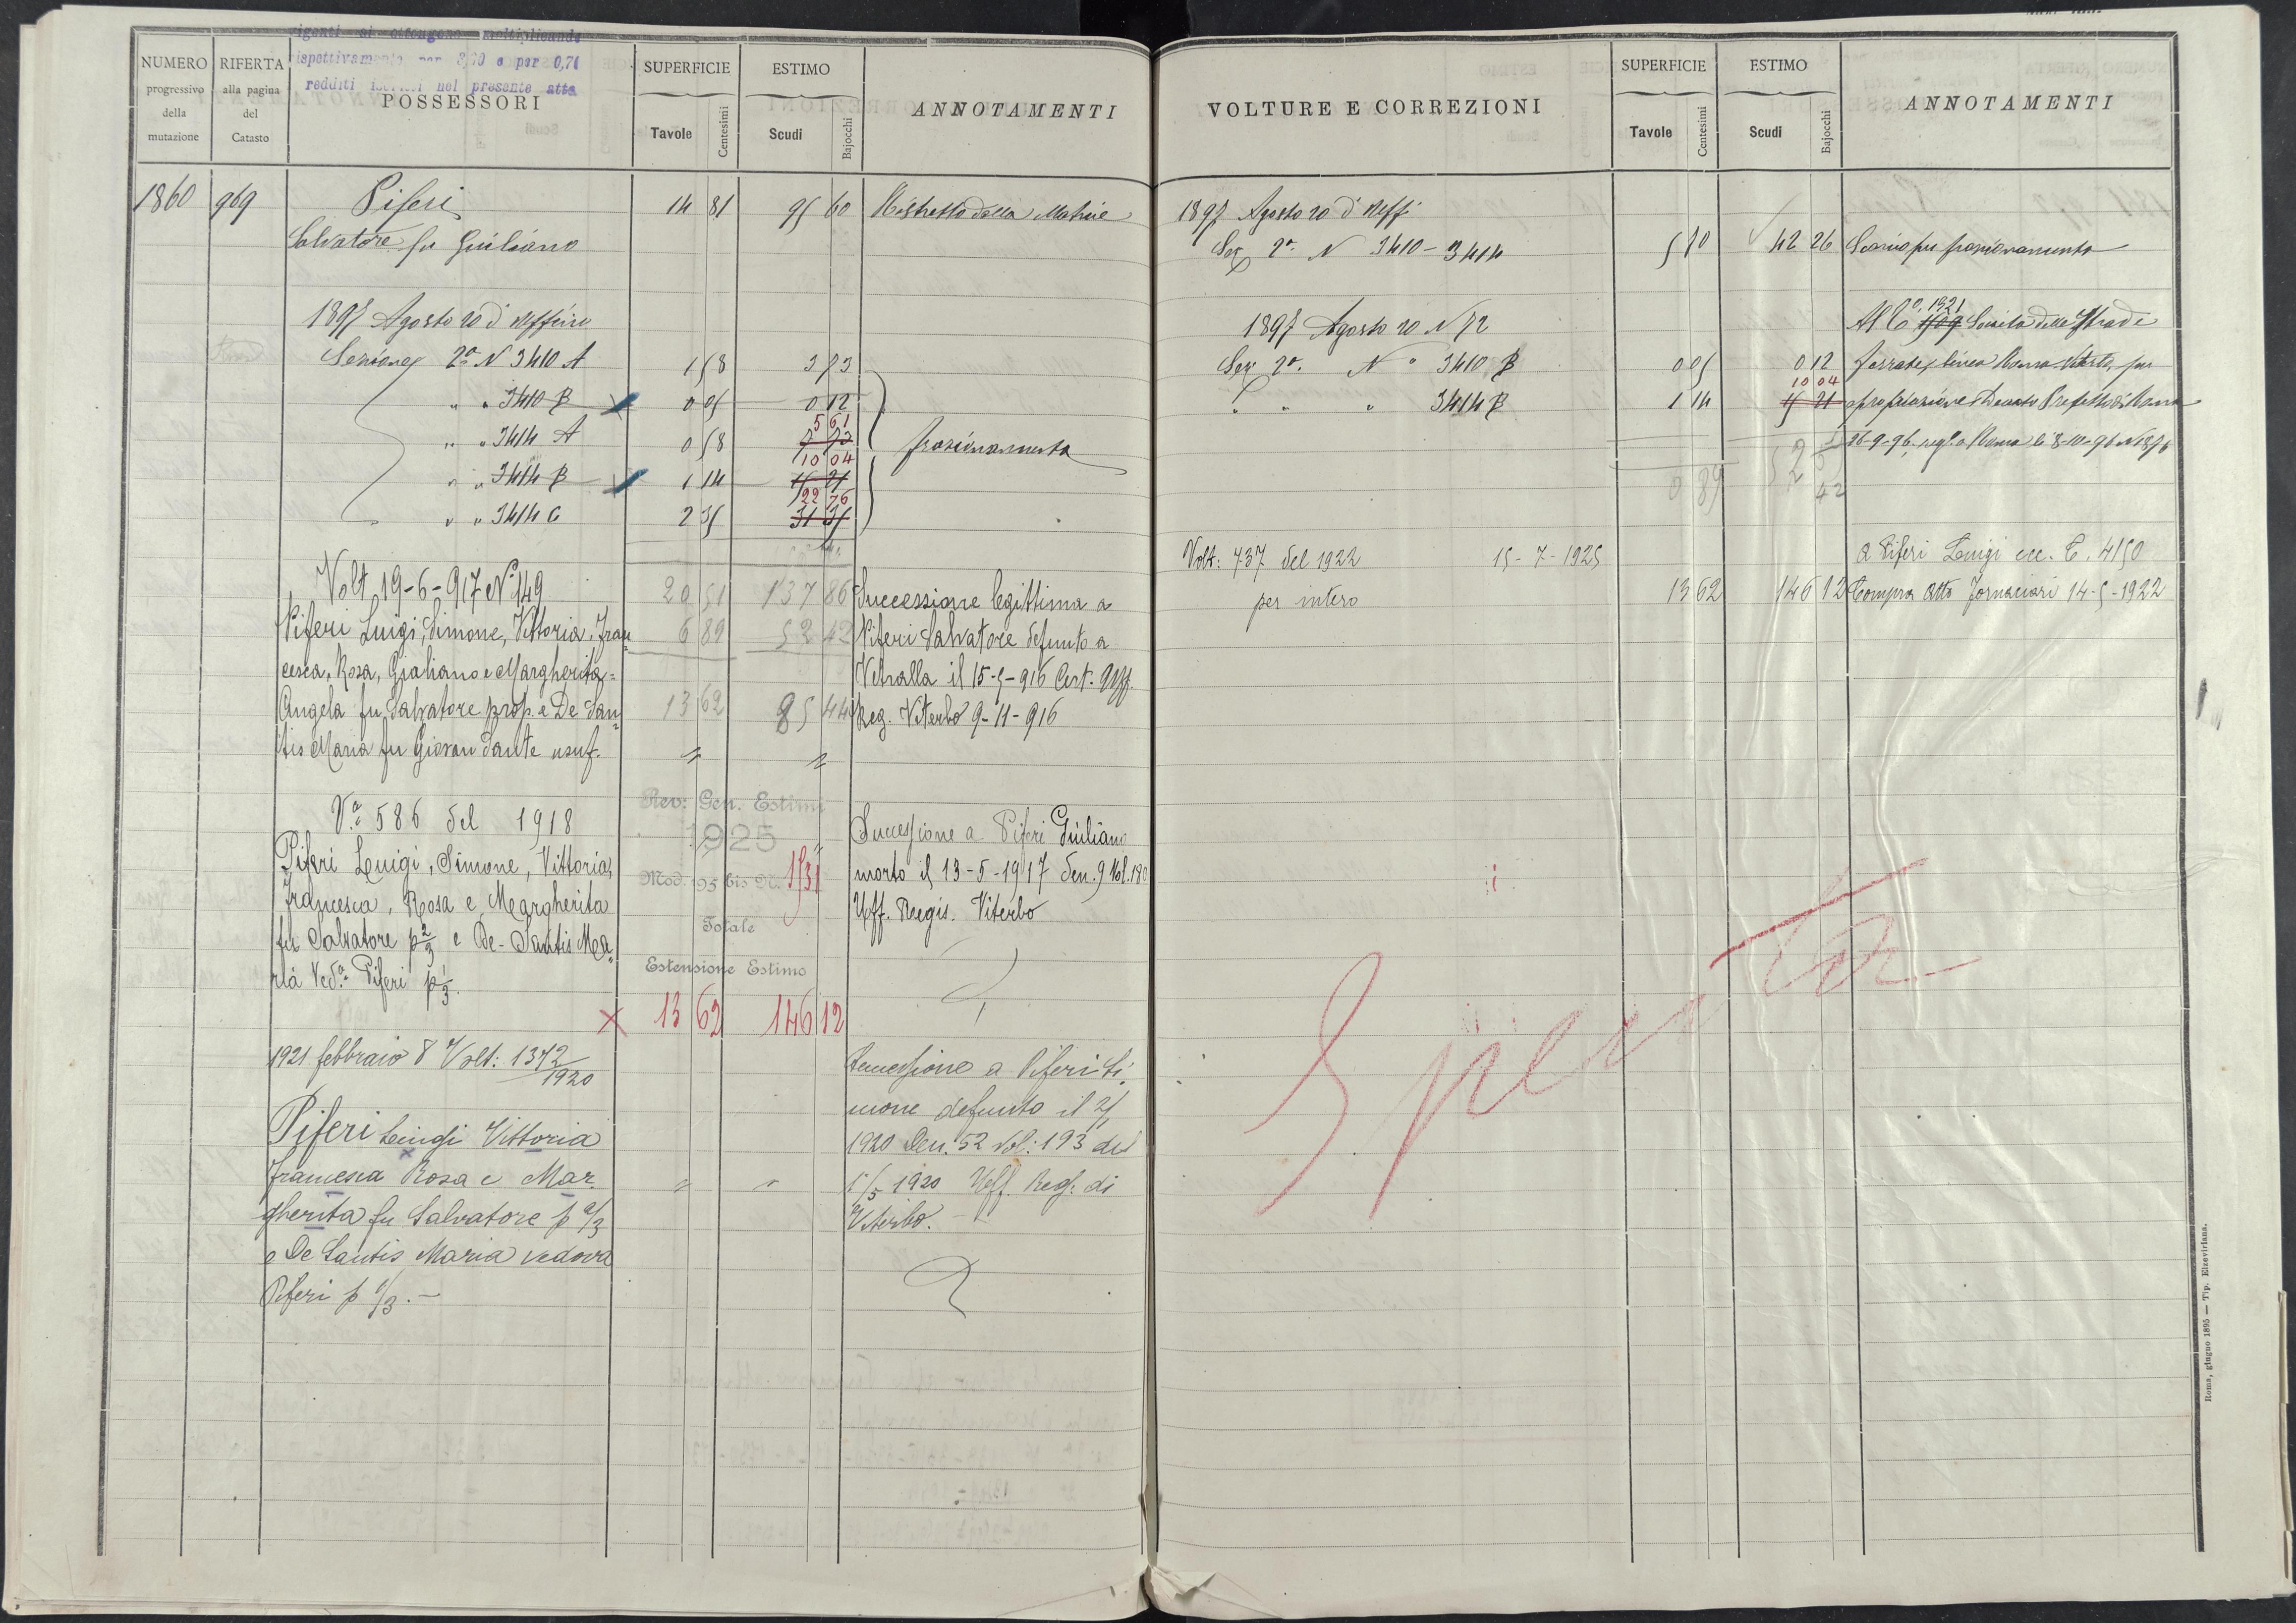 NUMERO progressivo della mutazione
RIFERTA alla pagina del Catasto
si ottengono moltiplicando
rispettivamente per 3,70 e per 0,71
redditi iscritti nel presente atto
POSSESSORI
SUPERFICIE Tavole Centesimi
ESTIMO Scudi Bajocchi
ANNOTAMENTI
1860 969 Piferi 14 81 95 60 Ristretto della Matrice
Salvatore fu Giuliano
1897 Agosto 20 d'Uffizio
Sezione 2a N 3410 A 1 58 3 73
" " 3410 B 0 05 0 12
5 61
" " 3414 A 0 58 7 73
10 04
" " 3414 B 1 14 15 21
22 76
" " 3414 C 2 35 31 35
frazionamento
Volt 19-6-917 N. 149 20 51 137 86 Successione legittima a
Piferi Luigi, Simone, Vittoria, Fran 6 89 52 42 Piferi Salvatore defunto a
cesca, Rosa, Giuliano e Margherita= Vetralla il 15-5-916 Cert. Uff.
Angela fu Salvatore prop. e De San 13 62 85 44 Reg. Viterbo 9-11-916
tis Maria fu Giovan Sante usuf. " "
Va 586 del 1918
Rev: Gen. Estimi
1925
Mod. 195 bis N. 1531
Totale
Estensione Estimo
13 62 146 12
Successione a Piferi Giuliano
Piferi Luigi, Simone, Vittoria, morto il 13-5-1917 den. 9 Vol. 180
Francesca, Rosa e Margherita Uff. Regis. Viterbo
fu Salvatore p 2/3 e De-Santis Ma=
ria Ved.a Piferi p 1/3.
1921 febbraio 8 Volt: 1372/1920 Successione a Piferi Si.
mone defunto il
Piferi Luigi Vittoria 1920 Den. 52 Vol: 193 del
Francesca Rosa e Mar. " " 1/5 1920 Uff. Reg. di
gherita fu Salvatore p 2/3 Viterbo.
e De Santis Maria vedova
Piferi p 1/3.-
VOLTURE E CORREZIONI
SUPERFICIE Tavole Centesimi
ESTIMO Scudi Bajocchi
ANNOTAMENTI
1897 Agosto 20 d'Uffi
Sez 2a N 3410-3414 5 70 42 26 Scarico per frazionamento
1897 Agosto 20 N 72 Al C 1921 Società delle Strade
Sez 2a. N° 3410 B 0 05 0 12 ferrate, linea Roma-Viterbo, per
10 04
" " " 3414 B 1 14 15 21 espropriazione Decreto Prefetto di Roma
26-9-96, reg. a Roma li 8-10-96 N 1876
Volt: 737 del 1922 15-7-1925 a Piferi Luigi ecc. C. 4150
per intero 13 62 146 12 Compra Atto Fornaciari 14-5-1922
Spenta
Roma, giugno 1895 — Tip. Elzeviriana.